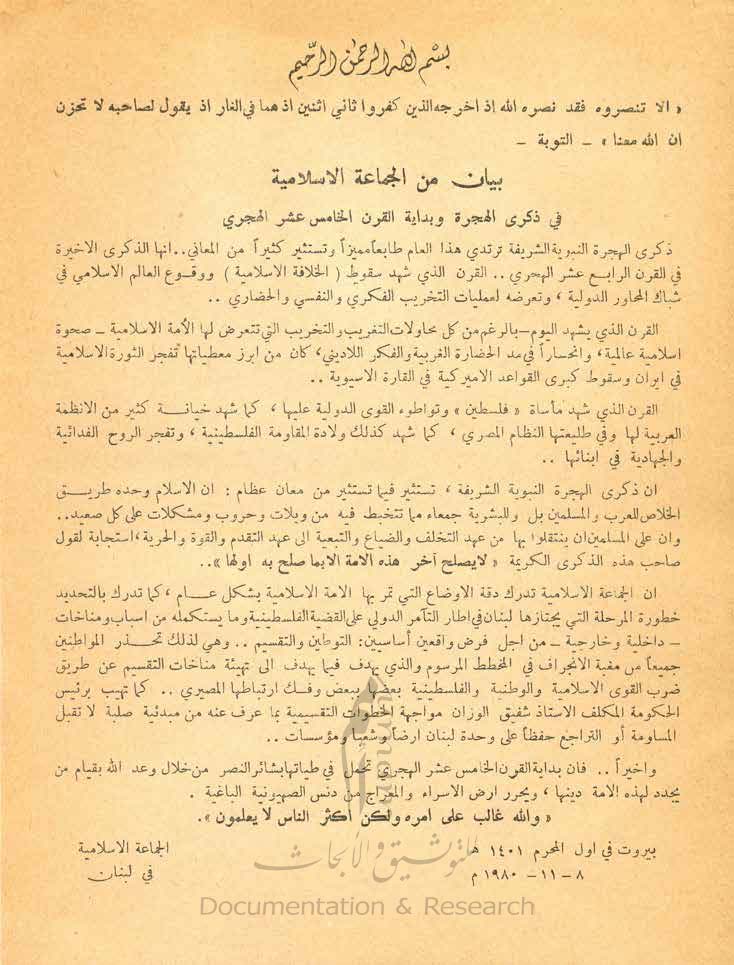 بسم الله الرحمن الرحيم
« الا تنصروه فقد نصره الله إذ اخرجه الذين كفروا ثاني اثنين اذ هما في الغار اذ يقول لصاحبه لا تحزن
ان الله معنا » ـ التوبة ـ
بيان من الجماعة الاسلامية
في ذكرى الهجرة وبداية القرن الخامس عشر الهجري
ذكرى الهجرة النبوية الشريفة ترتدي هذا العام طابعاً مميزاً وتستثير كثيراً من المعاني.. انها الذكرى الاخيرة
في القرن الرابع عشر الهجري .. القرن الذي شهد سقوط ( الخلافة الاسلامية ) ووقوع العالم الاسلامي في
شباك المحاور الدولية ، وتعرضه لعمليات التخريب الفكري والنفسي والحضاري ..
القرن الذي يشهد اليوم–بالرغم من كل محاولات التغريب والتخريب التي تتعرض لها الأمة الاسلامية ـ صحوة
اسلامية عالمية، وانحساراً في مد الحضارة الغربية والفكر اللاديني، كان من ابرز معطياتها تفجر الثورة الاسلامية
في ايران وسقوط كبرى القواعد الاميركية في القارة الاسيوية ..
القرن الذي شهد مأساة « فلسطين » وتواطوء القوى الدولية عليها ، كما شهد خيانة كثير من الانظمة
العربية لها وفي طليعتها النظام المصري ، كما شهد كذلك ولادة المقاومة الفلسطينية ، وتفجر الروح الفدائية
والجهادية في ابنائها ..
ان ذكرى الهجرة النبوية الشريفة ، تستثير فيما تستثير من معان عظام : ان الاسلام وحده طريق
الخلاص للعرب والمسلمين بل وللبشرية جمعاء مما تتخبط فيه من ويلات وحروب ومشكلات على كل صعيد..
وان على المسلمين ان ينتقلوا بها من عهد التخلف والضياع والتبعية الى عهد التقدم والقوة والحرية، استجابة لقول
صاحب هذه الذكرى الكريمة « لا يصلح آخر هذه الامة الا بما صلح به اولها »..
ان الجماعة الاسلامية تدرك دقة الاوضاع التي تمر بها الامة الاسلامية بشكل عام ، كما تدرك بالتحديد
خطورة المرحلة التي يجتازها لبنان في اطار التآمر الدولي على القضية الفلسطينية وما يستكمله من اسباب ومناخات
– داخلية وخارجية – من اجل فرض واقعين أساسيين: التوطين والتقسيم .. وهي لذلك تحذر المواطنين
جميعاً من مغبة الانجراف في المخطط المرسوم والذي يهدف فيما يهدف الى تهيئة مناخات التقسيم عن طريق
ضرب القوى الاسلامية والوطنية والفلسطينية بعضها ببعض وفك ارتباطها المصيري .. كما تهيب برئيس
الحكومة المكلف الاستاذ شفيق الوزان مواجهة الخطوات التقسيمية بما عرف عنه من مبدئية صلبة لا تقبل
المساومة أو التراجع حفظاً على وحدة لبنان ارضاً وشعباً ومؤسسات ..
واخيراً .. فان بداية القرن الخامس عشر الهجري تحمل في طياتها بشائر النصر من خلال وعد الله بقيام من
يجدد لهذه الامة دينها ، ويحرر ارض الاسراء والمعراج من دنس الصهيونية الباغية .
« والله غالب على امره ولكن اكثر الناس لا يعلمون ».
بيروت في اول المحرم ١٤٠١ هـ
٨ – ١١ – ١٩٨٠ م
الجماعة الاسلامية
في لبنان
للتوثيق والأبحاث
Documentation & Research